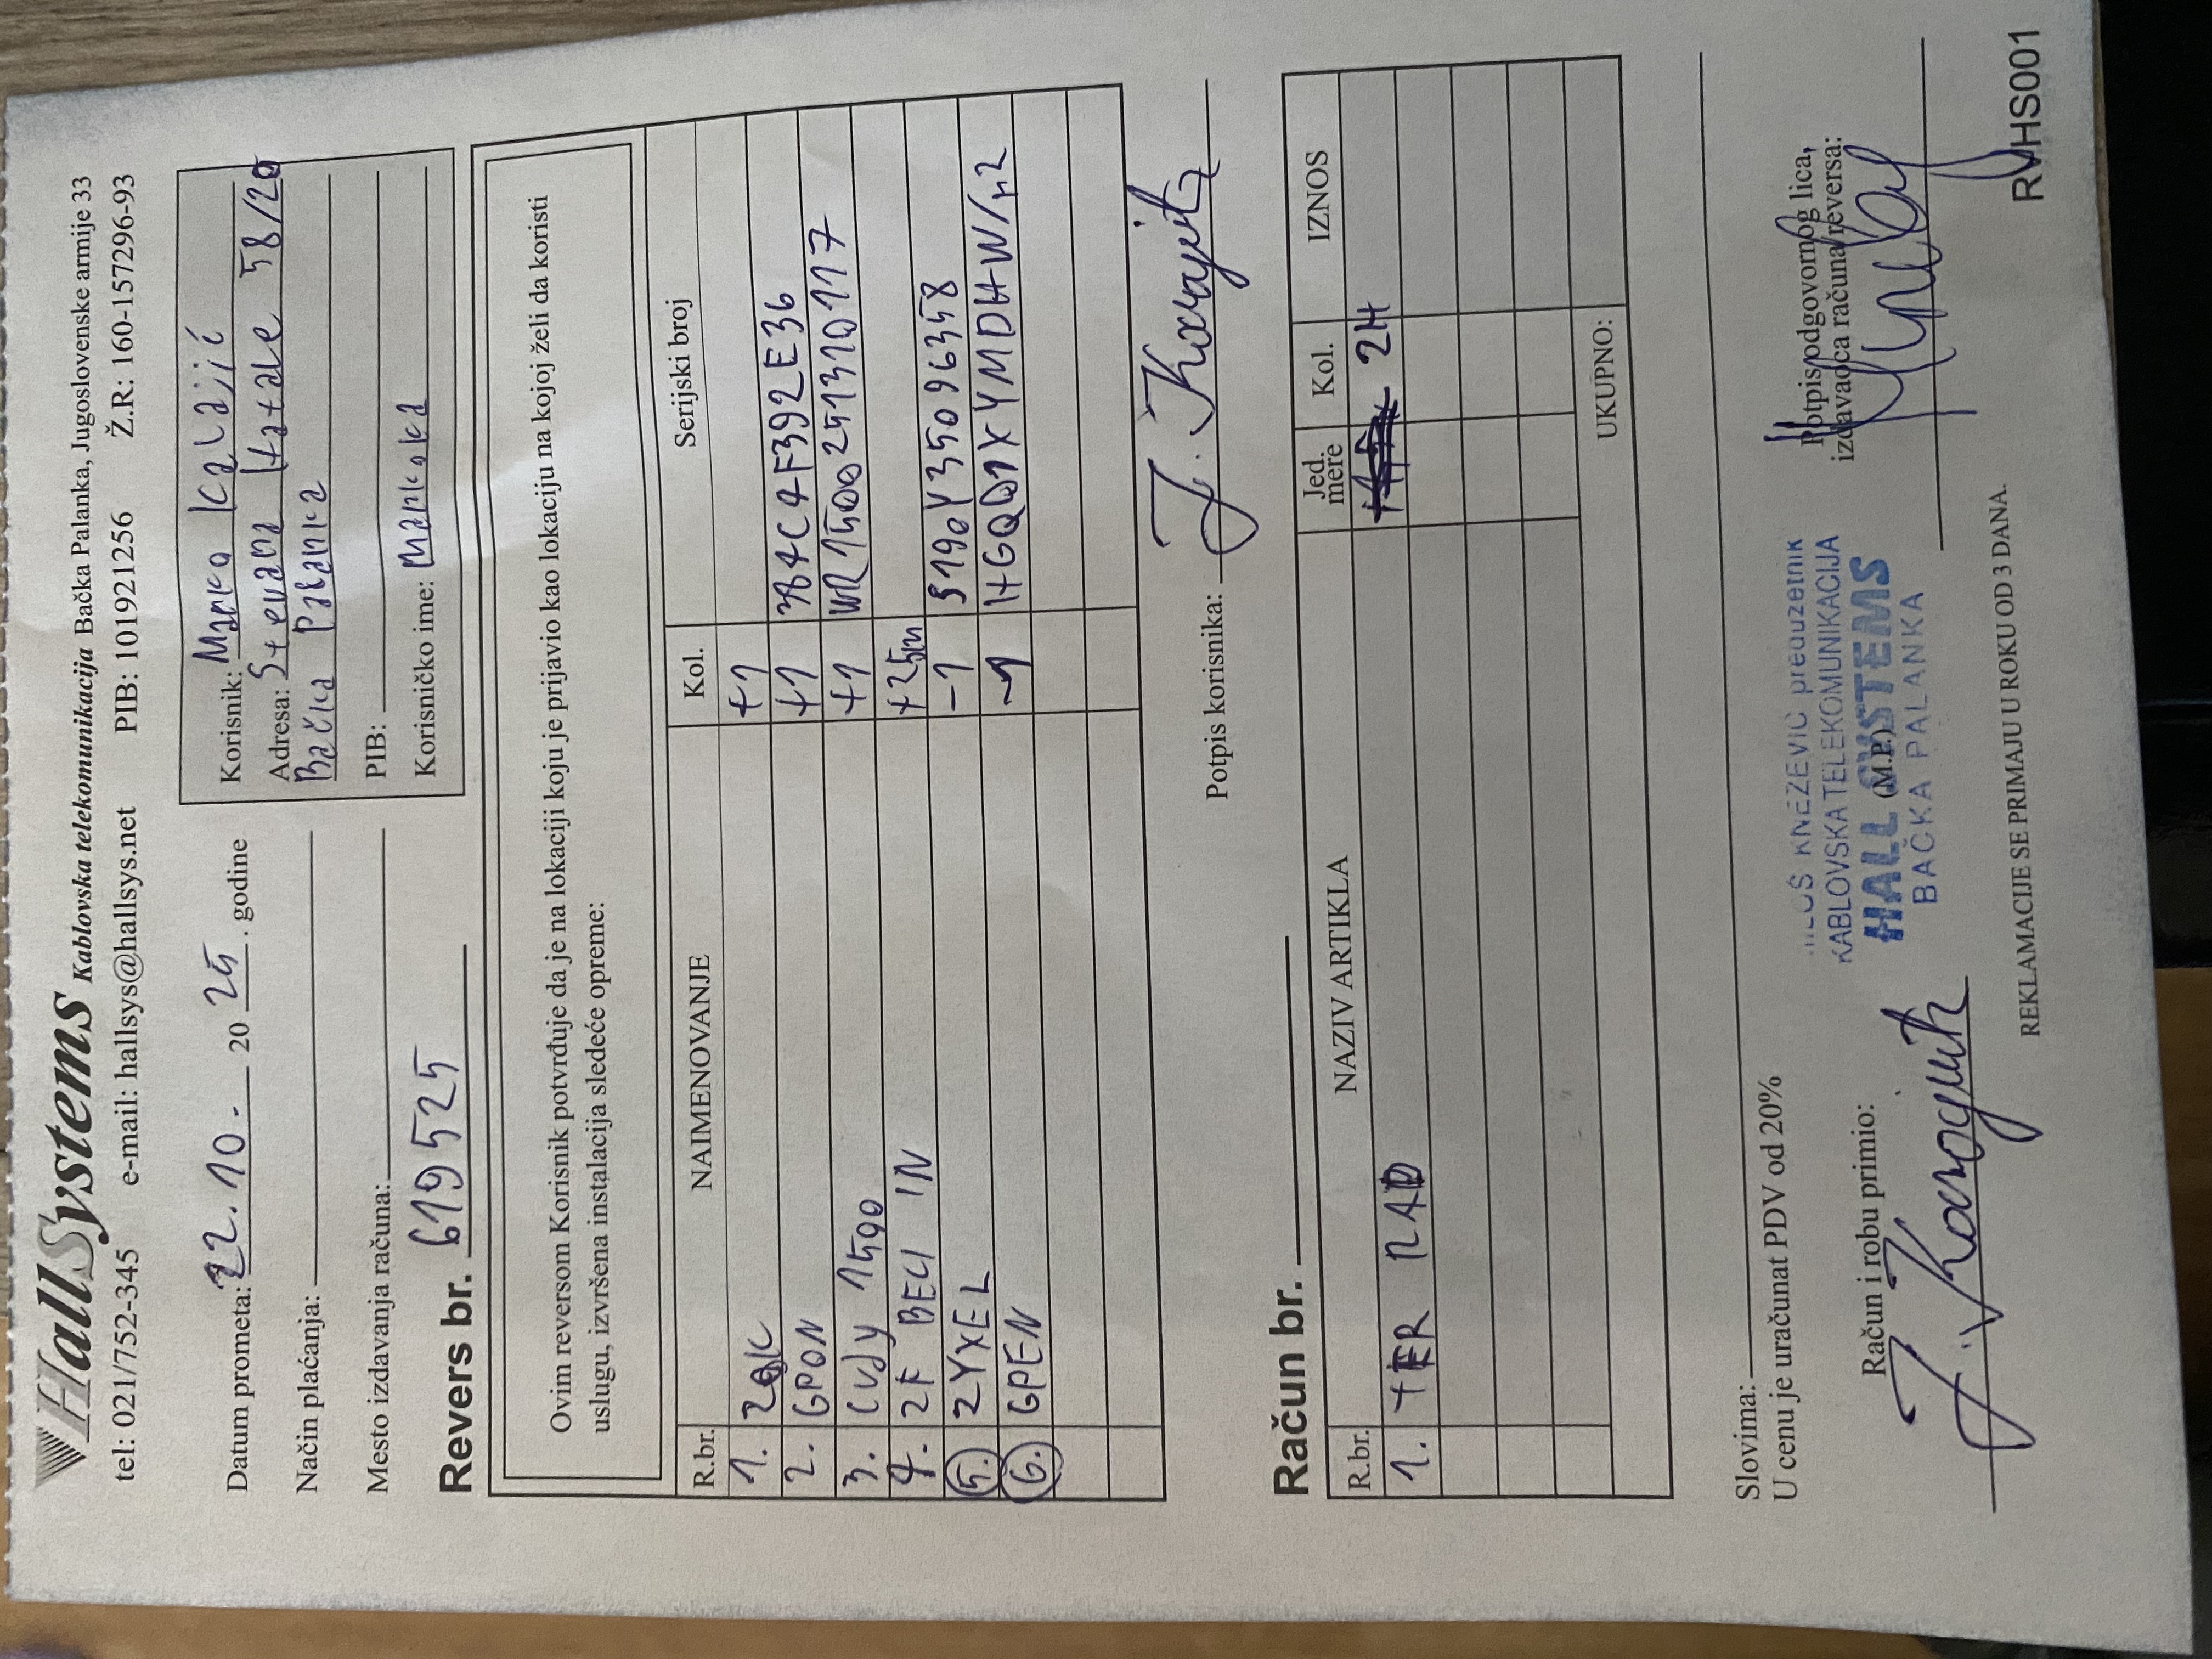 HallSystems Kablovska telekomunikacija Bačka Palanka, Jugoslovenske armije 33
tel: 021/752-345 e-mail: hallsys@hallsys.net PIB: 101921256 Ž.R: 160-157296-93
Datum prometa: 22.10. 2025. godine
Način plaćanja:
Mesto izdavanja računa:
Revers br. 619525
Korisnik: Marko
Adresa: Stevana 58/20
Bačka Palanka
PIB:
Korisničko ime:
Ovim reversom Korisnik potvrđuje da je na lokaciji koju je prijavio kao lokaciju na kojoj želi da koristi
uslugu, izvršena instalacija sledeće opreme:
R.br. NAIMENOVANJE Kol. Serijski broj
1. +1
2. GPON +1 384C4F392E36
3. Cudy 1500 +1 WR1500251310117
4. 2F BELI IN +25m
5. ZYXEL -1 S190Y35096358
6. GPEN -1
Potpis korisnika:
Račun br.
R.br. NAZIV ARTIKLA Jed. mere Kol. IZNOS
1. TER RAD 2H
UKUPNO:
Slovima:
U cenu je uračunat PDV od 20%
Račun i robu primio:
(M.P.)
Potpis odgovornog lica,
izdavaoca računa/reversa:
MILOŠ KNEŽEVIĆ preduzetnik
KABLOVSKA TELEKOMUNIKACIJA
HALL SYSTEMS
BAČKA PALANKA
REKLAMACIJE SE PRIMAJU U ROKU OD 3 DANA.
RVHS001